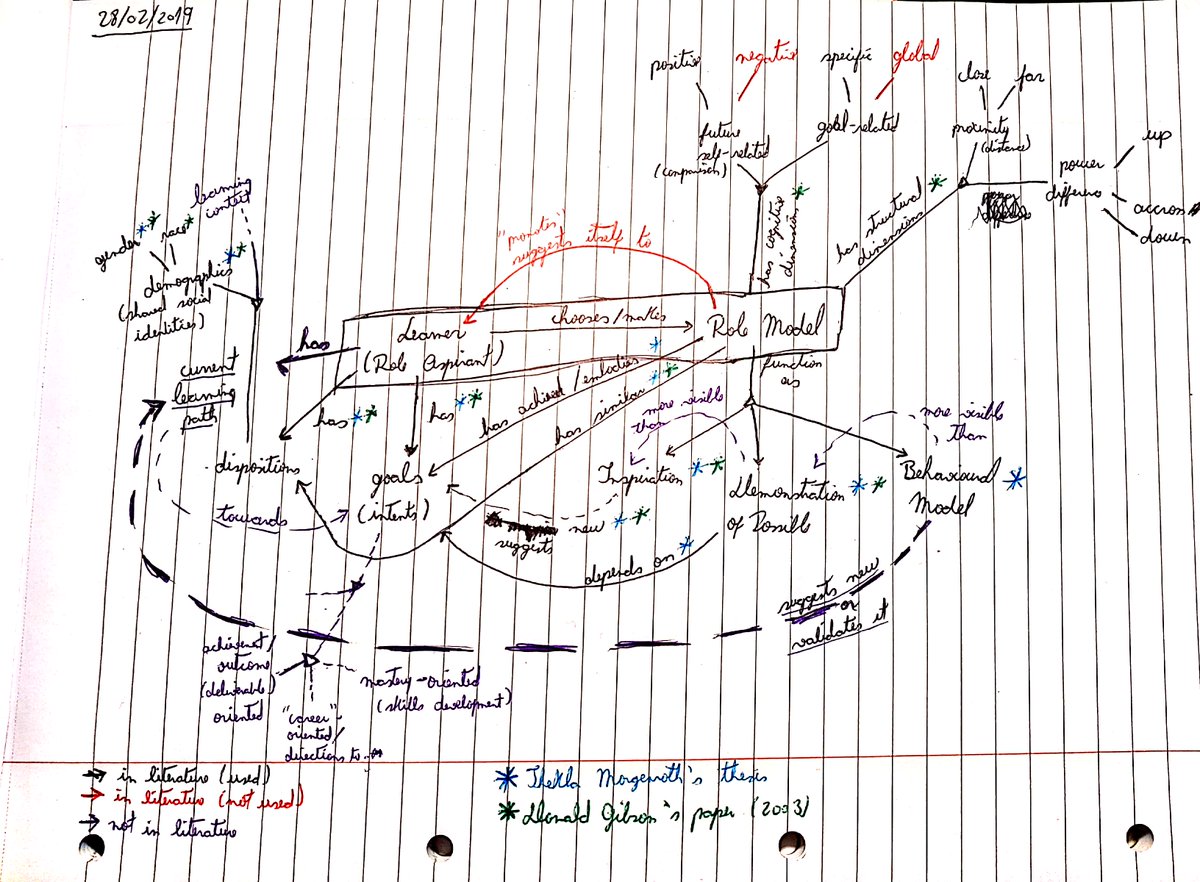 28/02/2019
positive
negative
specific
global
close
far
future
self-related
(comparison)
goal-related
proximity
(distance)
power
difference
up
accross
down
has cognitive
dimensions
has structural
dimensions
learning
context
gender
race
demographics
(shared social
identities)
"promotes"
suggests itself to
Learner
(Role Aspirant)
chooses/makes
Role Model
has
current
learning
path
has
has
has achieved/embodies
has similar
function
as
more visible
than
more visible
than
dispositions
goals
(intents)
towards
Inspiration
Demonstration
of Possible
Behavioural
Model
suggests
new
depends on
suggests new
or
validates it
achievement/
outcome
(deliverable)
oriented
"career"-
oriented/
directions to
mastery-oriented
(skills development)
in literature (used)
in literature (not used)
not in literature
Thekla Morgenroth's thesis
Donald Gibson's paper (2003)